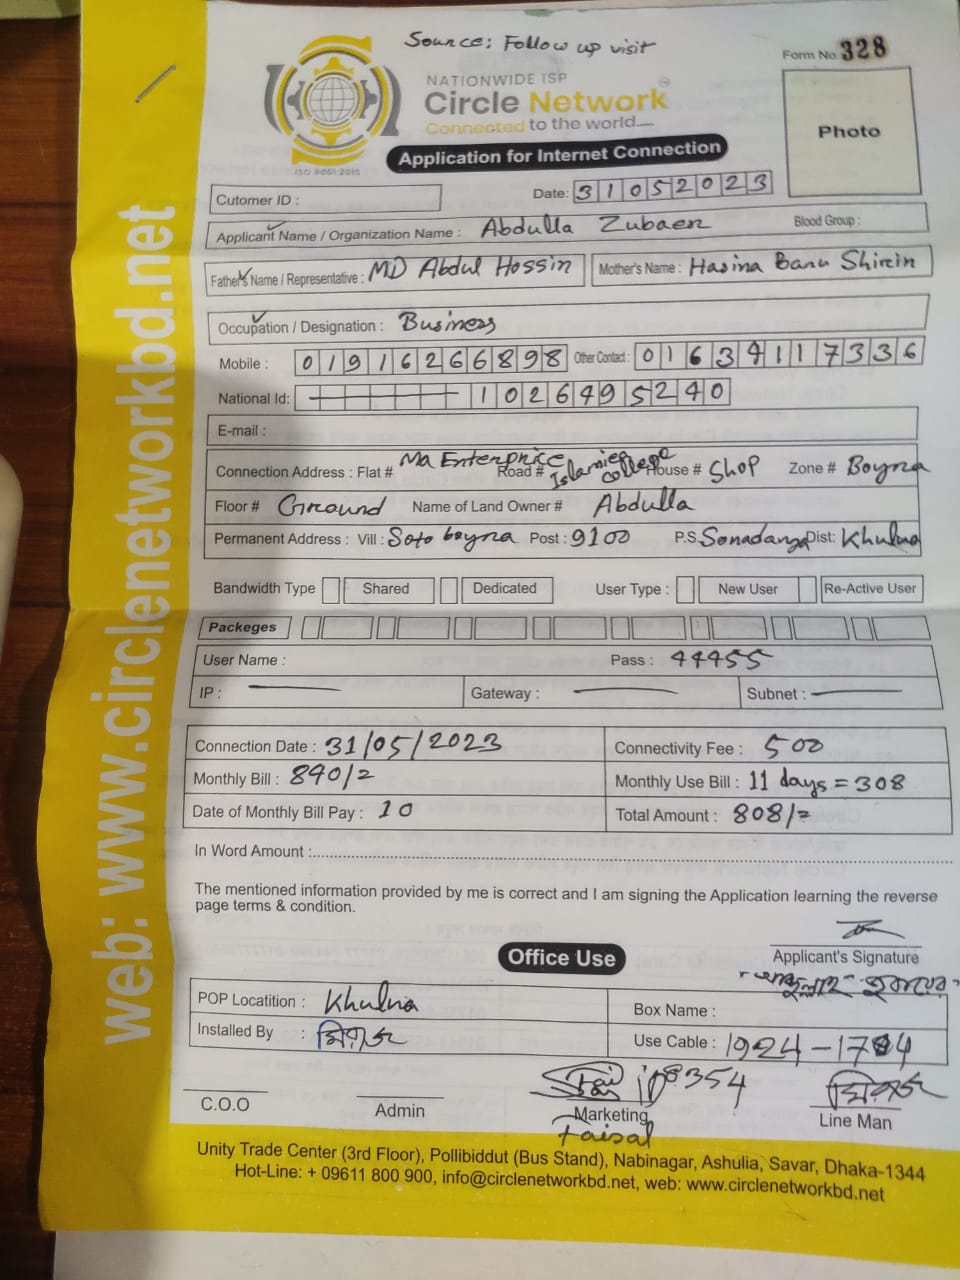 Source: Follow up visit
Form No 328
NATIONWIDE ISP
Circle Network
Connected to the world....
ISO 9001:2015
Photo
Application for Internet Connection
Cutomer ID :
Date: 31052023
Applicant Name / Organization Name : Abdulla Zubaer Blood Group :
Father's Name / Representative : MD Abdul Hossin Mother's Name : Hasina Banu Shirin
Occupation / Designation : Business
Mobile : 01916266898 Other Contact : 01634117336
National Id: 1026495240
E-mail :
Connection Address : Flat # Ma Enterprice Road # Islamiea college House # Shop Zone # Boyra
Floor # Ground Name of Land Owner # Abdulla
Permanent Address : Vill : Soto boyra Post : 9100 P.S. Sonadanga Dist: Khulna
Bandwidth Type Shared Dedicated User Type : New User Re-Active User
Packeges
User Name : Pass : 44455
IP : Gateway : Subnet :
Connection Date : 31/05/2023 Connectivity Fee : 500
Monthly Bill : 840/= Monthly Use Bill : 11 days = 308
Date of Monthly Bill Pay : 10 Total Amount : 808/=
In Word Amount :
The mentioned information provided by me is correct and I am signing the Application learning the reverse
page terms & condition.
Applicant's Signature
Office Use
POP Locatition : Khulna Box Name :
Installed By : মিরাজ Use Cable : 1924-1784
C.O.O Admin Marketing Line Man
ID 354 মিরাজ
Faisal
Unity Trade Center (3rd Floor), Pollibiddut (Bus Stand), Nabinagar, Ashulia, Savar, Dhaka-1344
Hot-Line: + 09611 800 900, info@circlenetworkbd.net, web: www.circlenetworkbd.net
web: www.circlenetworkbd.net